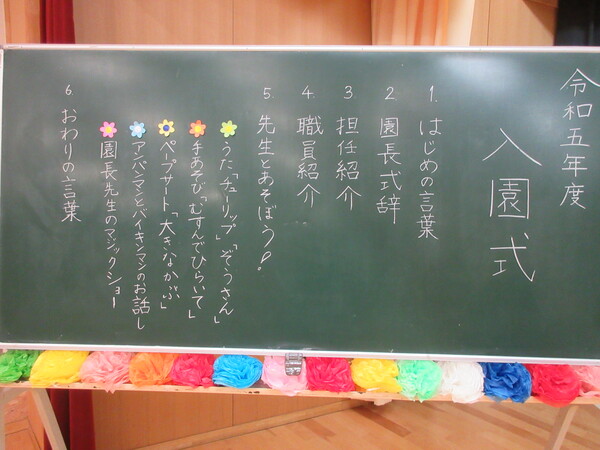 令和五年度
入園式
1. はじめの言葉
2. 園長式辞
3. 担任紹介
4. 職員紹介
5. 先生とあそぼう!
うた「チューリップ」「ぞうさん」
手あそび「むすんでひらいて」
ペープサート「大きなかぶ」
アンパンマンとバイキンマンのお話し
園長先生のマジックショー
6. おわりの言葉